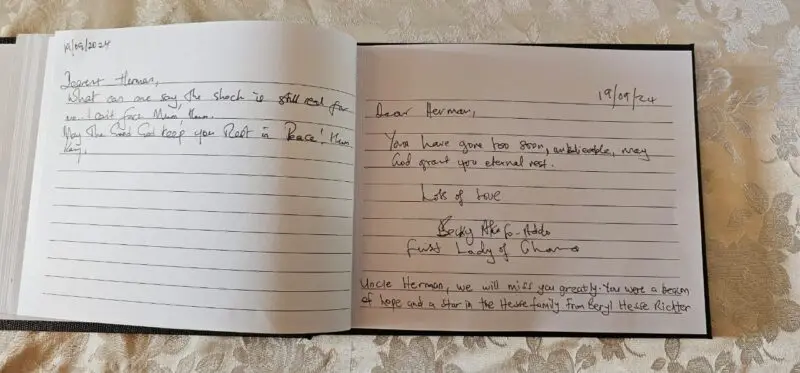 19/09/2024
Dearest Herman,
What can one say, the shock is still real for
me. I can't face Mum Hem.
May the Good God keep you Rest in Peace!
19/09/24
Dear Herman,
You have gone too soon, unbelievable, may
God grant you eternal rest.
Lots of love
Becky Akufo-Addo
First Lady of Ghana
Uncle Herman, we will miss you greatly. You were a beacon
of hope and a star in the Hesse family from Beryl Hesse Richter